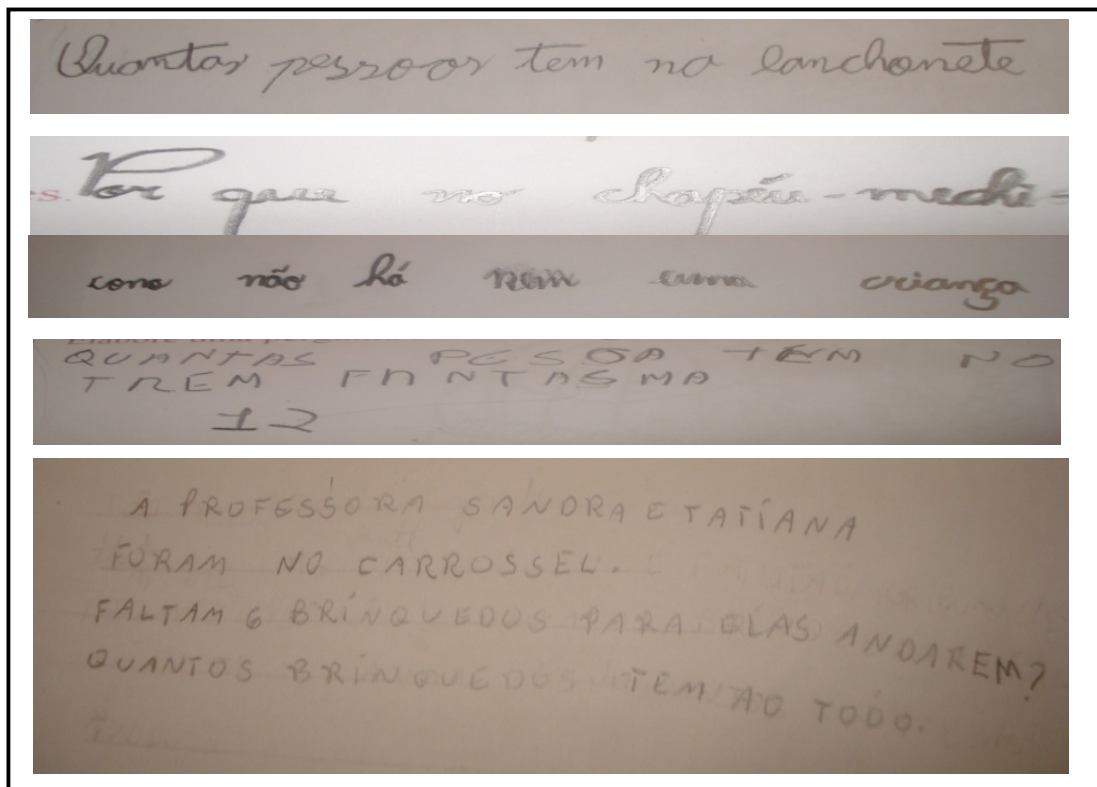 Quantas pessoas tem na lanchonete
s. Por que no chapéu-mechi-
cano não há nem uma criança
QUANTAS PESSOA TEM NO
TREM FANTASMA
12
A PROFESSORA SANDRA E TATIANA
FORAM NO CARROSSEL.
FALTAM 6 BRINQUEDOS PARA ELAS ANDAREM?
QUANTOS BRINQUEDOS TEM AO TODO.